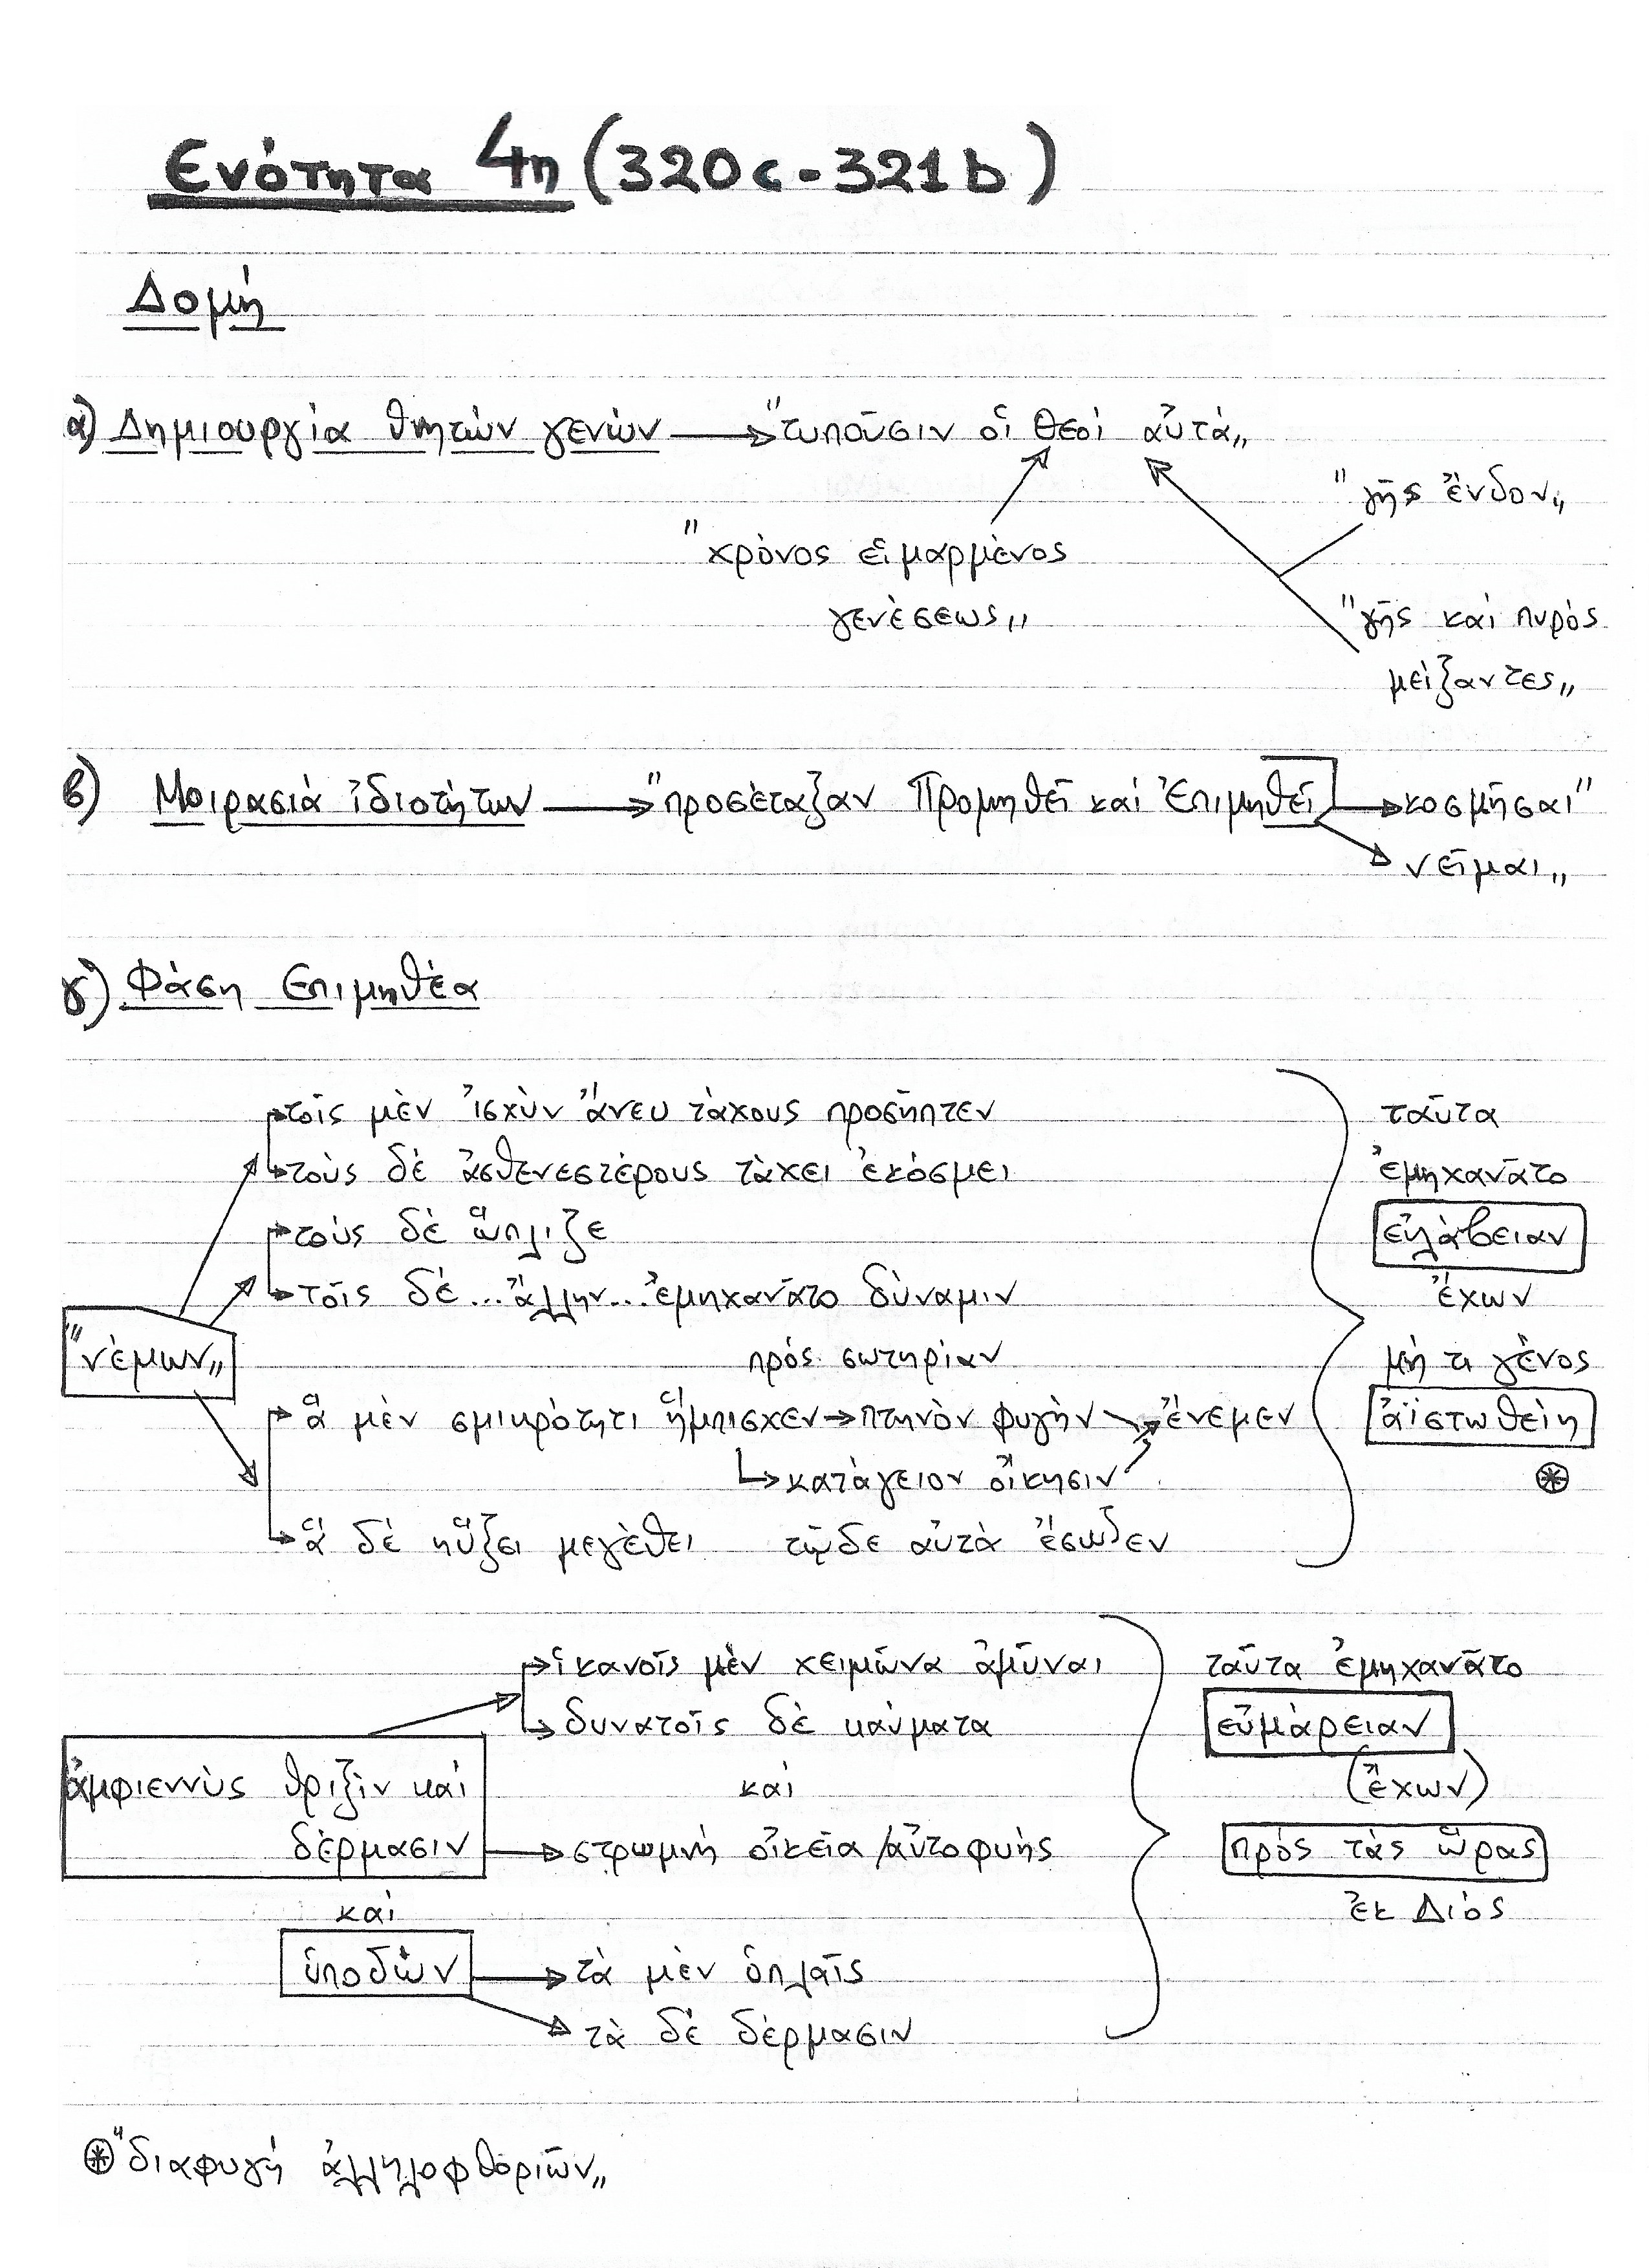 Ενότητα 4η (320c-321b)
Δομή
α) Δημιουργία θνητών γενών → "τυποῦσιν οἱ θεοί αὐτά"
"γῆς ἔνδον"
"χρόνος εἱμαρμένος
γενέσεως"
"γῆς καί πυρός
μείξαντες"
β) Μοιρασιά ἰδιοτήτων → "προσέταξαν Προμηθεῖ καί Ἐπιμηθεῖ → κοσμῆσαι"
νεῖμαι"
γ) Φάση Επιμηθέα
τοῖς μὲν ἰσχὺν ἄνευ τάχους προσῆπτεν
τοὺς δέ ἀσθενεστέρους τάχει ἐκόσμει
τούς δὲ ὥπλιζε
τοῖς δέ...ἄλλην...ἐμηχανᾶτο δύναμιν
πρός σωτηρίαν
"νέμων"
ἅ μὲν σμικρότητι ἤμπισχεν → πτηνὸν φυγὴν → ἔνεμεν
→ κατάγειον οἴκησιν
ἅ δὲ ηὖξε μεγέθει τῷδε αὐτὰ ἔσωζεν
ταῦτα
ἐμηχανᾶτο
εὐλάβειαν
ἔχων
μή τι γένος
ἀϊστωθείη
⊛
ἱκανοῖς μὲν χειμῶνα ἀμῦναι
δυνατοῖς δὲ καύματα
ἀμφιεννὺς θριξὶν καί
δέρμασιν
καί
→ στρωμνή οἰκεία/αὐτοφυής
καί
ὑποδῶν
→ τὰ μὲν ὁπλαῖς
τὰ δέ δέρμασιν
ταῦτα ἐμηχανᾶτο
εὐμάρειαν
(ἔχων)
πρός τὰς ὥρας
ἐκ Διός
⊛ "διαφυγή ἀλληλοφθοριῶν"